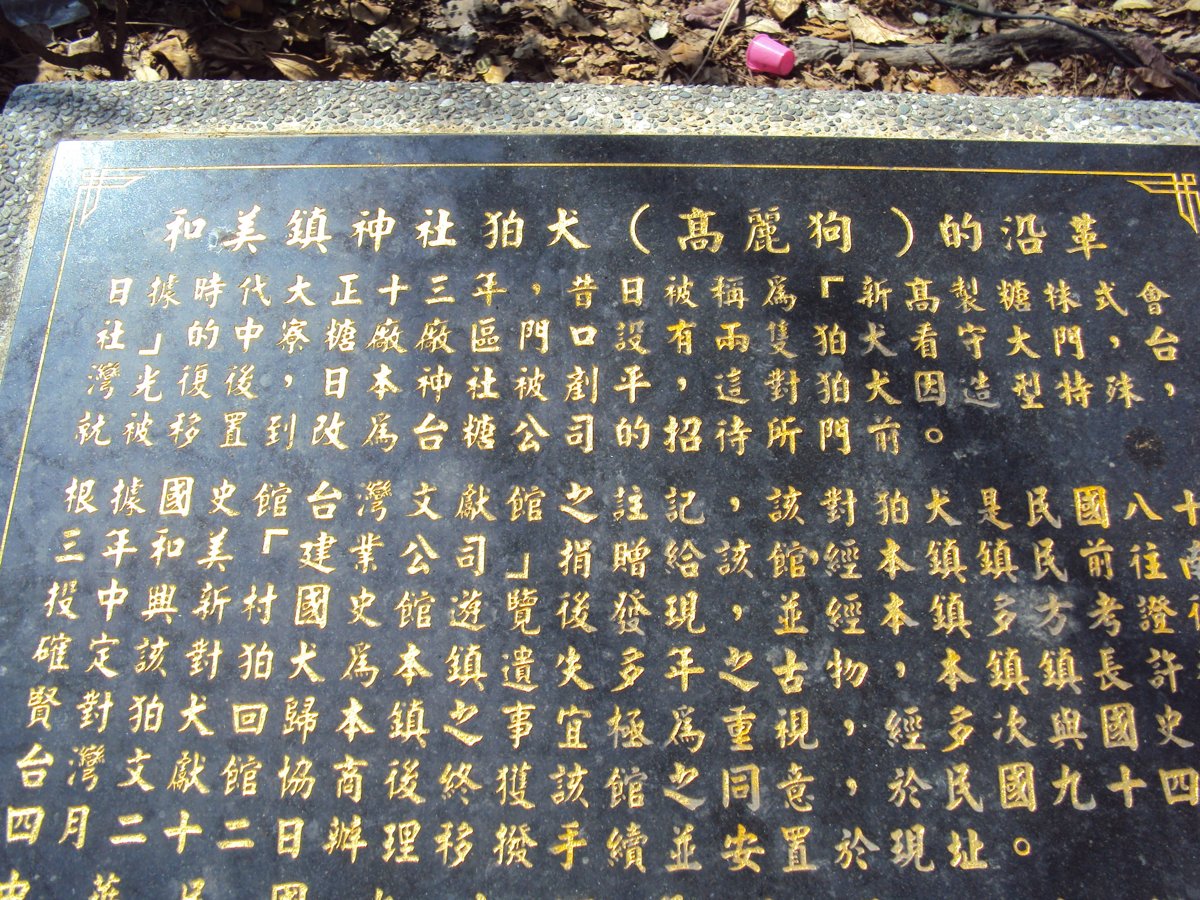 和美鎮神社狛犬(高麗狗)的沿革
日據時代大正十三年,昔日被稱為「新高製糖株式會
社」的中寮糖廠廠區,門口設有兩隻狛犬看守大門,台
灣光復後,日本神社被剷平,這對狛犬因造型特殊,
就被移置到改為台糖公司的招待所門前。
根據國史館台灣文獻館之註記,該對狛犬是民國八十
三年和美「建業公司」捐贈給該館,經本鎮鎮民前往南
投中興新村國史館遊覽後發現,並經本鎮多方考證
確定該對狛犬為本鎮遺失多年之古物,本鎮鎮長許
賢對狛犬回歸本鎮之事宜極為重視,經多次與國史
台灣文獻館協商後終獲該館之同意,於民國九十四
四月二十二日辦理移撥手續並安置於現址。
中華民國